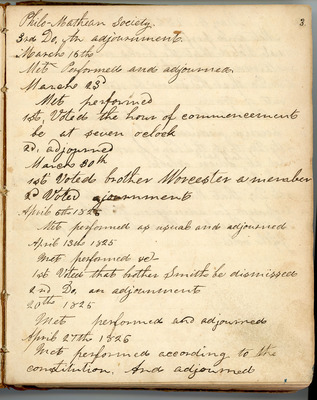 Philo-Mathean Society. 3
3rd Do, An adjournment.
March 16th
Met Performed and adjourned.
March 23d
Met performed
1st, Voted the hour of commencement
be at seven oclock
2d, adjourned
March 30th
1st Voted brother Worcester a member
2d Voted ajournment
April 6th 1825
Met performed as usual and adjourned
April 13th 1825
Met performed &c
1st Voted that brother Smith be dismissed
2nd Do, an adjournment
20th 1825
Met performed and adjourned
April 27th 1825
Met performed according to the
constitution. And adjourned